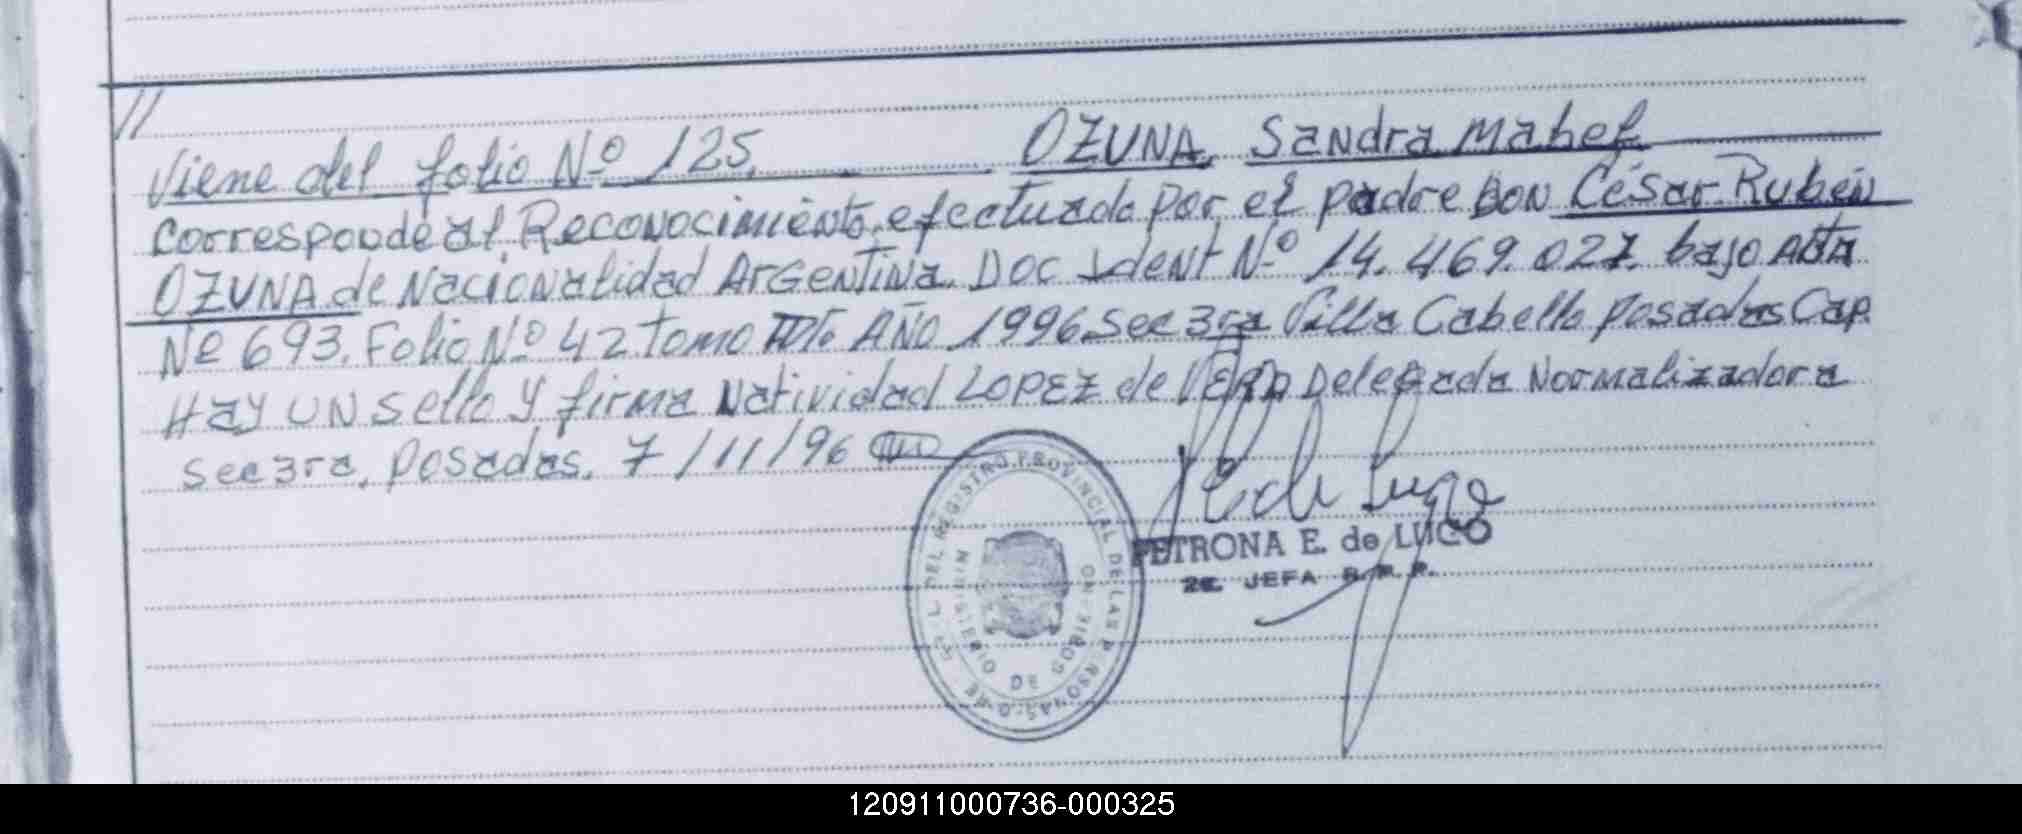 //
Viene del folio Nº 125. OZUNA, Sandra Mabel
Corresponde al Reconocimiento, efectuado por el padre Don César Rubén
OZUNA de Nacionalidad Argentina. Doc Ident Nº 14.469.027. bajo Acta
Nº 693. Folio Nº 42 Tomo AÑO 1996 Sec 3ra Villa Cabello Posadas Cap.
Hay un sello y firma Natividad LOPEZ de Delegada Normalizadora
Sec 3ra, Posadas. 7/11/96
DEL REGISTRO PROVINCIAL DE LAS PERSONAS
MINISTERIO DE GOBIERNO
PETRONA E. de LUGO
2a. JEFA R. P. P.
120911000736-000325